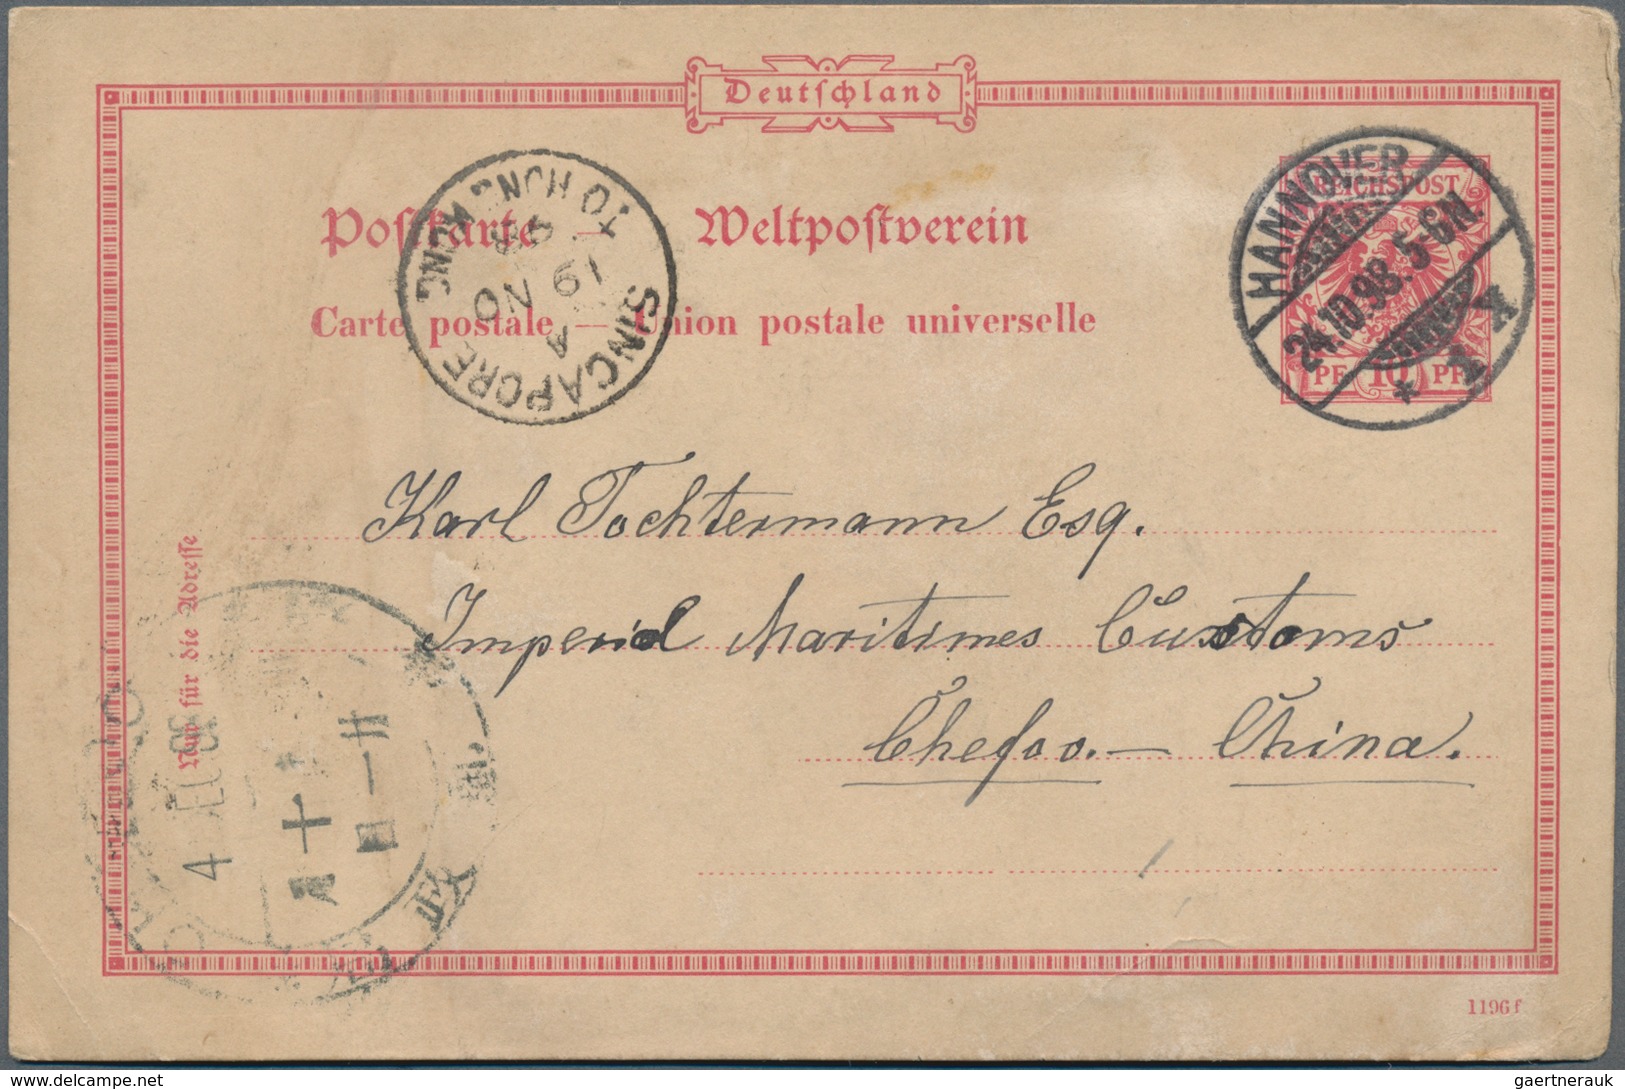 Deutschland
Postkarte — Weltpostverein
Carte postale — Union postale universelle
SINGAPORE TO HONG KONG
A
19 NO
98
HANNOVER
24.10.98. 5-6 N.
* 1 *
REICHSPOST
PF 10 PF
Karl Tochtermann Esq.
Imperial Maritimes Customs
Chefoo. — China.
Nur für die Adresse
4 DEC 98
十
月
廿
一
日
1196 f
gaertnerauk